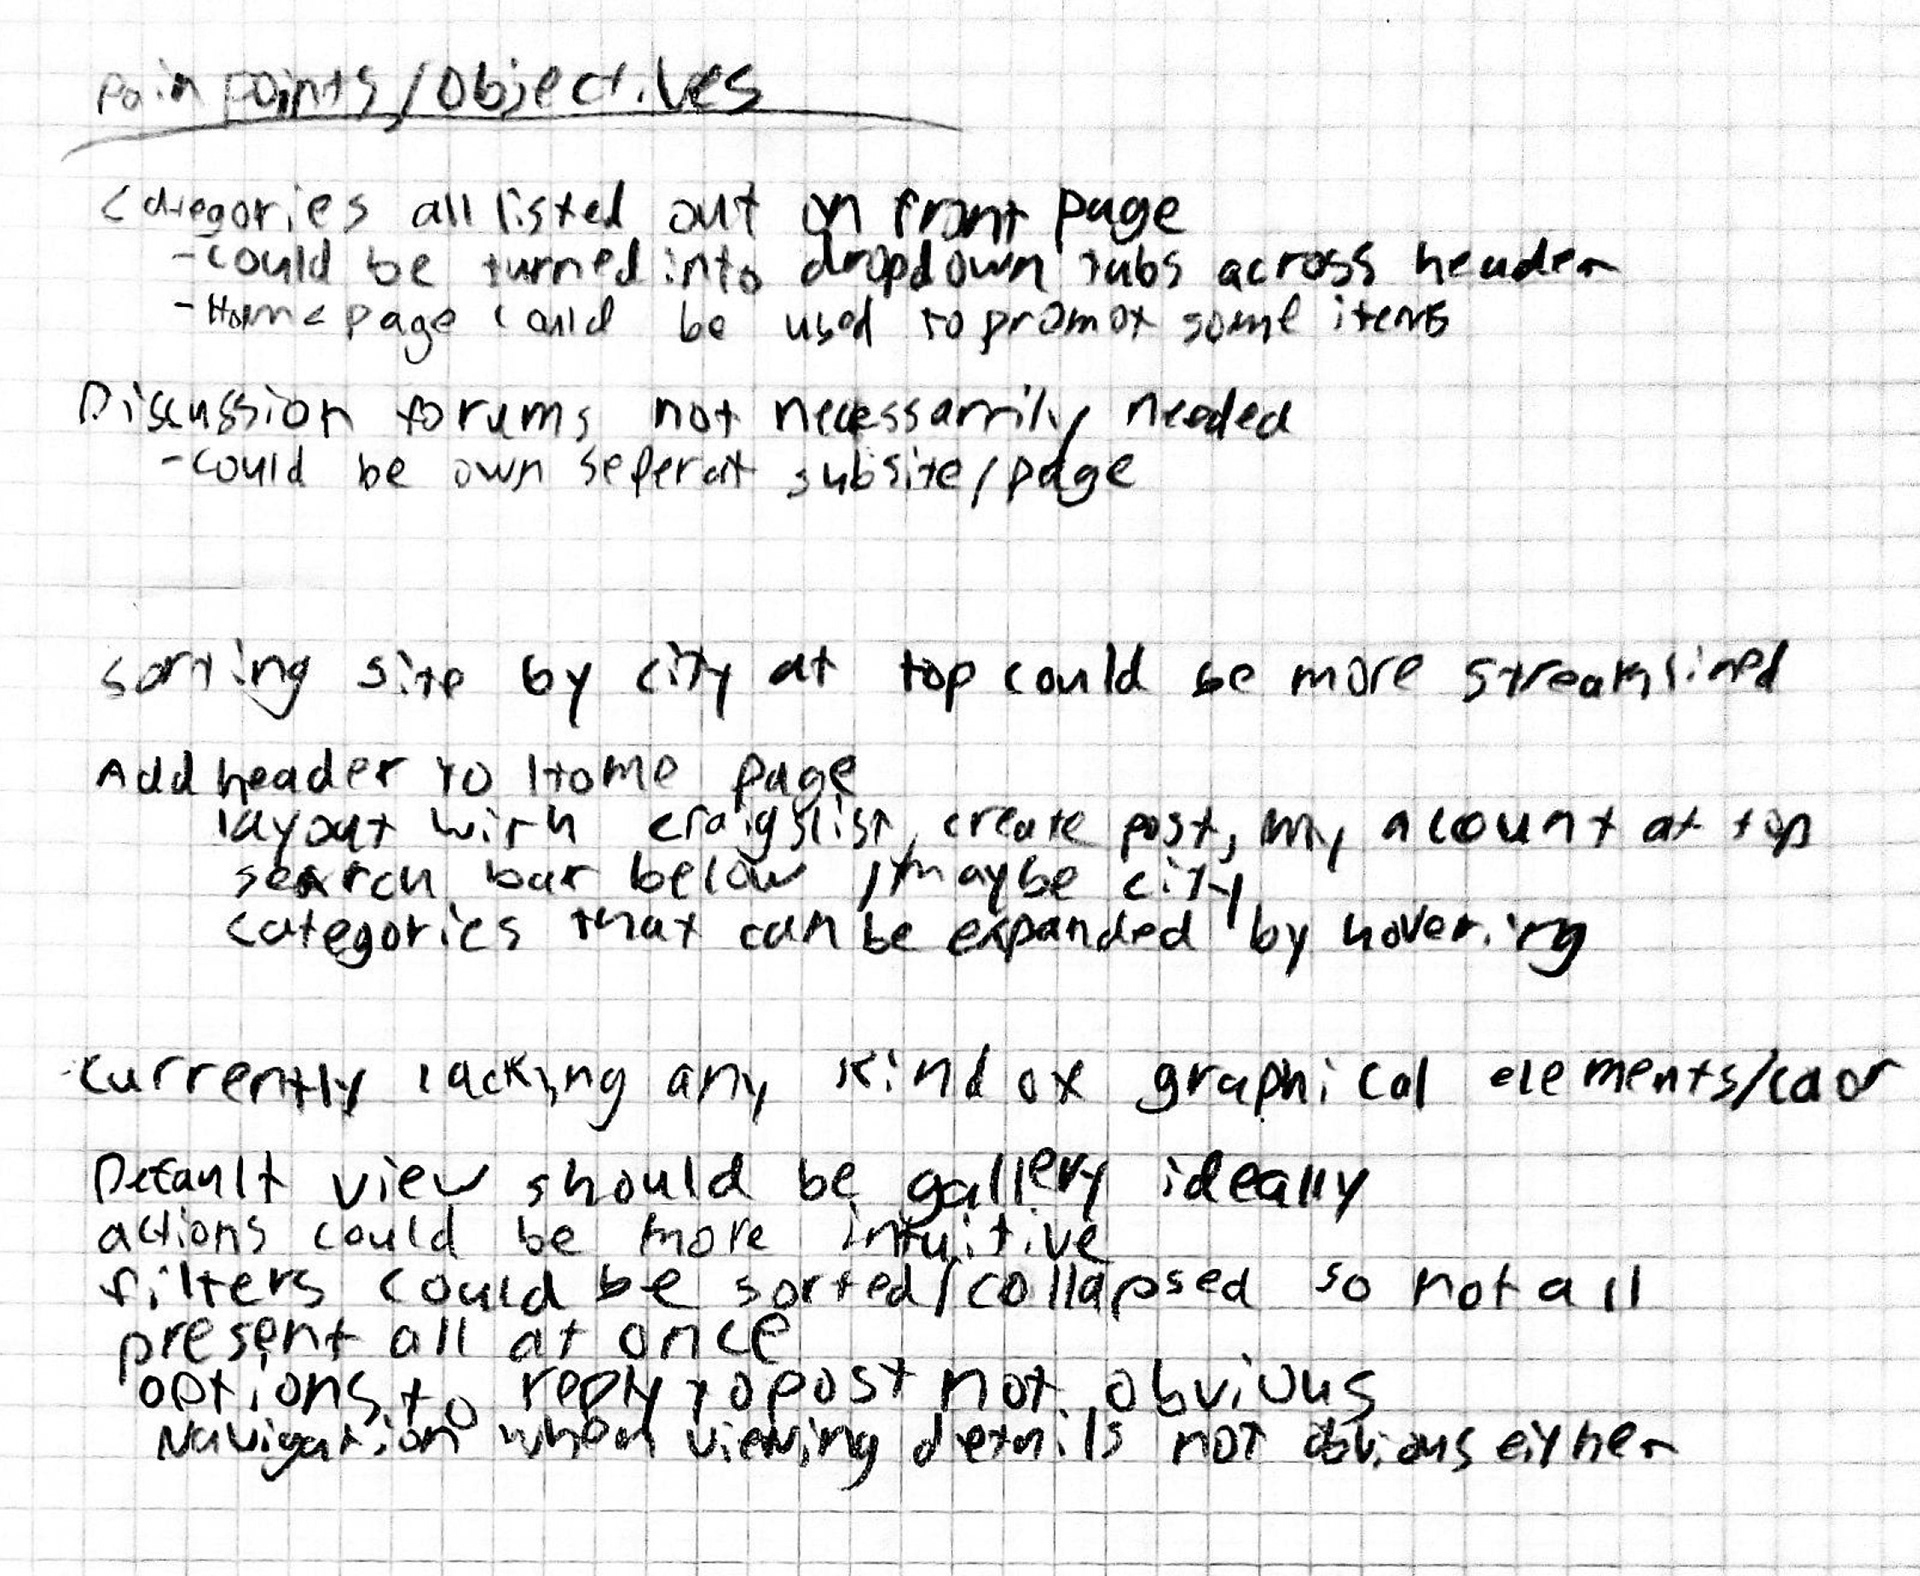 Pain points/Objectives
Categories all listed out on front page
-could be turned into dropdown tabs across header
-Home page could be used to promot some items
Discussion forums not necessarrily needed
-could be own seperat subsite/page
Sorting site by city at top could be more streamlined
Add header to Home page
layout with craigslist, create post, my acount at top
search bar below, maybe city
categories that can be expanded by hovering
Currently lacking any kind of graphical elements/color
Default view should be gallery ideally
actions could be more intuitive
filters could be sorted/collapsed so not all
present all at once
options to reply to post not obvious
Navigation when viewing details not obvious either